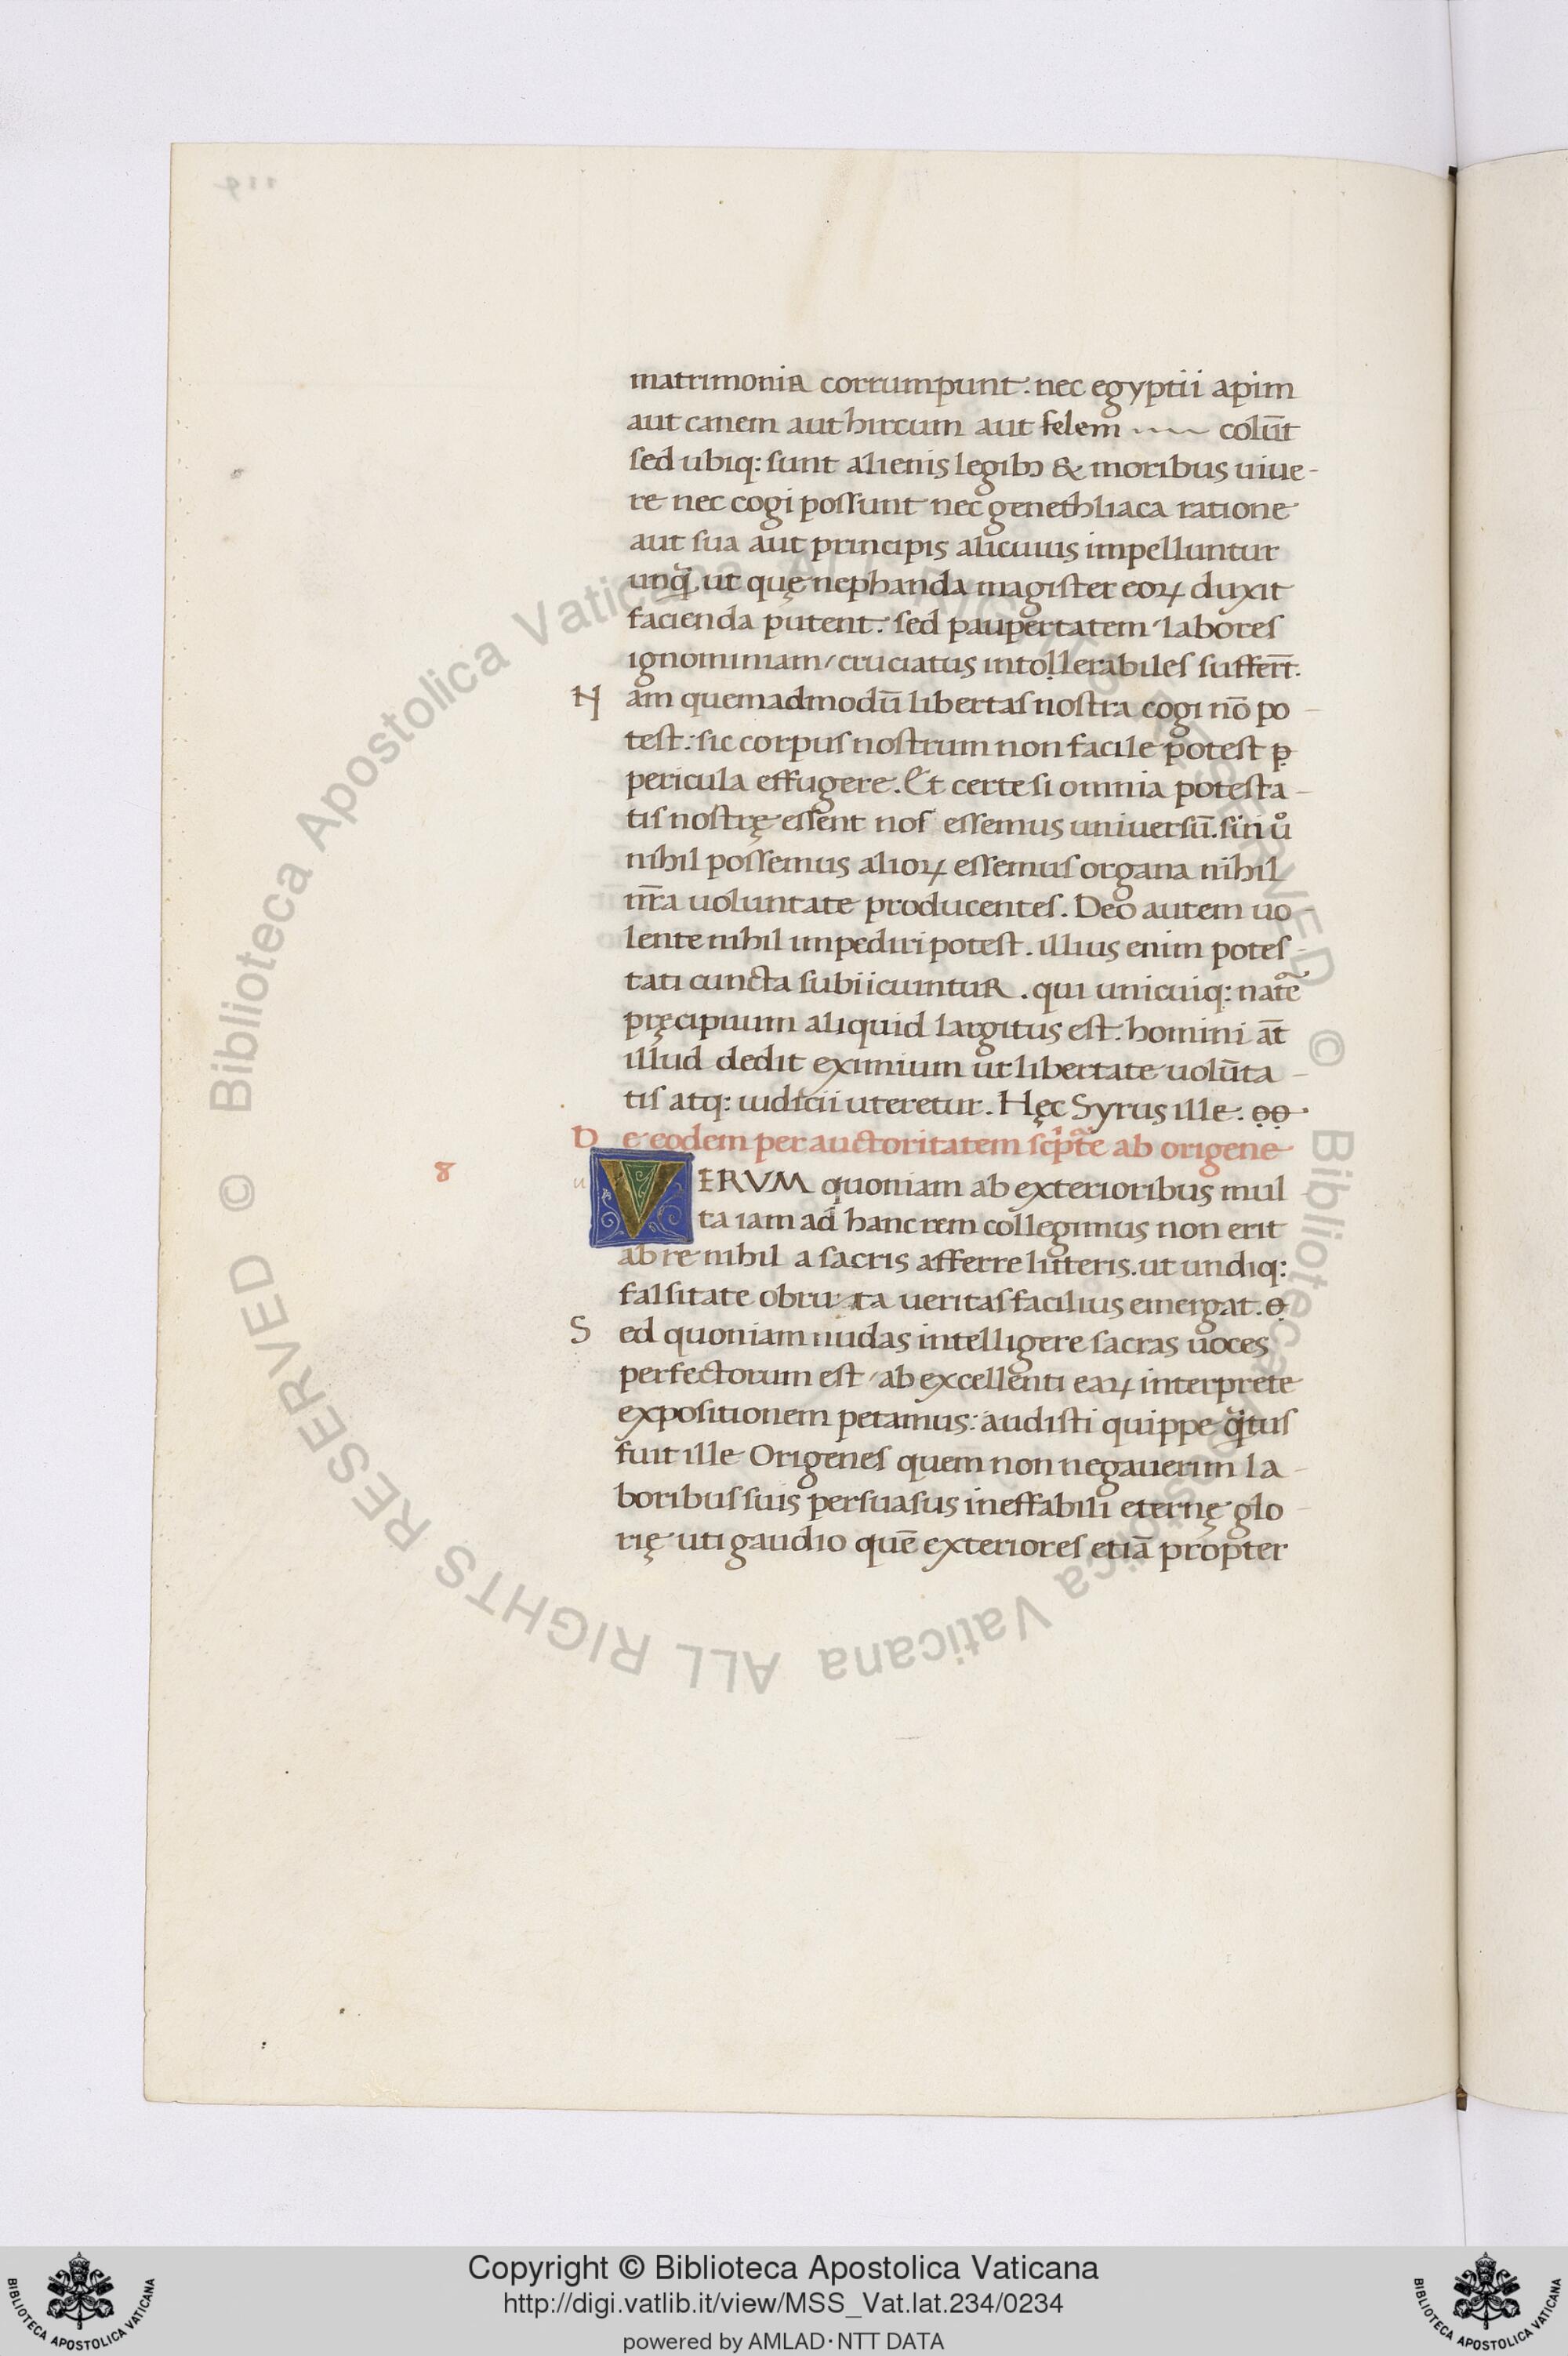 matrimonia corrumpunt. nec egyptii apim
aut canem aut hircum aut felem colūt
sed ubiq: sunt alienis legibꝫ & moribus uiue-
re nec cogi possunt nec genethliaca ratione
aut sua aut principis alicuius impelluntur
unq̃ ut quę nephanda magister eoꝝ duxit
facienda putent. sed paupertatem labores
ignominiam/cruciatus intollerabiles sufferr̄t.
N am quemadmodū libertas nostra cogi nō po
test: sic corpus nostrum non facile potest ꝑ
pericula effugere. Et certe si omnia potesta-
tis nostrę essent nos essemus uniuersū. sin uº
nihil possemus alioꝝ essemus organa nihil
nr̄a uoluntate producentes. Deo autem uo
lente nihil impediri potest. illius enim potes-
tati cuncta subiicuntuR. qui unicuiq: natē
pręcipuum aliquid largitus est. homini āt
illud dedit eximium ut libertate uolūta-
tis atq: iudicii uteretur. Hęc Syrus ille.
D e eodem per auctoritatem scp̄tē ab origene
8
VERVM quoniam ab exterioribus mul
ta iam ad hanc rem collegimus non erit
ab re nihil a sacris afferre litteris. ut undiq:
falsitate obruta ueritas facilius emergat.
S ed quoniam nudas intelligere sacras uoces
perfectorum est/ab excellenti eaꝝ interprete
expositionem petamus: audisti quippe q̃tus
fuit ille Origenes quem non negauerim la-
boribus suis persuasus ineffabili eternę glo-
rię uti gaudio quē exteriores etiā propter
© Biblioteca Apostolica Vaticana ALL RIGHTS RESERVED © Biblioteca Apostolica Vaticana ALL RIGHTS RESERVED
Copyright © Biblioteca Apostolica Vaticana
http://digi.vatlib.it/view/MSS_Vat.lat.234/0234
powered by AMLAD·NTT DATA
BIBLIOTECA APOSTOLICA VATICANA
BIBLIOTECA APOSTOLICA VATICANA